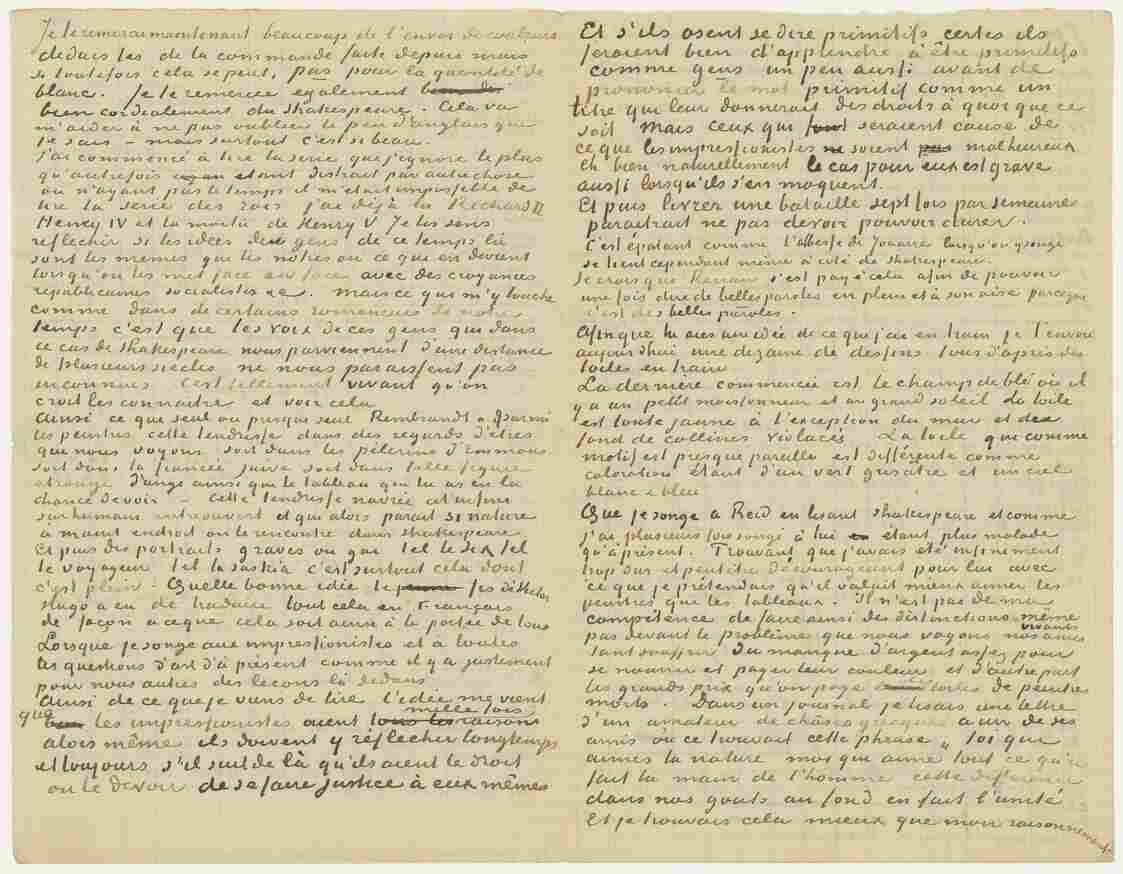 Je te remercie maintenant beaucoup de l'envoi de couleurs
deduis les de la commande faite depuis mais
si toutefois cela se peut, pas pour la quantité de
blanc. Je te remercie également
bien cordialement du Shakespeare. Cela va
m'aider à ne pas oublier le peu d'anglais que
je sais – mais surtout c'est si beau.
J'ai commencé à lire la serie que j'ignore le plus
qu'autrefois etant distrait par autre chose
ou n'ayant pas le temps il m'etait impossible de
lire la serie des rois j'ai déjà lu Richard II
Henry IV et la moitié de Henry V. Je lis sans
réflechir si les idées des gens de ce temps là
sont les memes que les nôtres ou ce que en devient
lorsqu'on les met face en face avec des croyances
republicaines socialistes &c. Mais ce qui m'y touche
comme dans de certains romanciers de notre
temps c'est que les voix de ces gens qui dans
ce cas de Shakespeare nous parviennent d'une distance
de plusieurs siecles ne nous paraissent pas
inconnues. C'est tellement vivant qu'on
croit les connaitre et voir cela
Ainsi ce que seul ou presque seul Rembrandt a parmi
les peintres cette tendresse dans des regards d'êtres
que nous voyons soit dans les pèlerins d'Emmaus
soit dans la fiancée juive soit dans telle figure
étrange d'ange ainsi que le tableau que tu as eu la
chance de voir – Cette tendresse navrée cet infini
surhumain entrouvert et qui alors parait si naturel
à maint endroit on le rencontre dans Shakespeare.
Et puis des portraits graves ou gai tel le Six tel
le voyageur tel la Saskia c'est surtout cela dont
c'est plein. Quelle bonne idée le fils de Victor
Hugo a eu de traduire tout cela en Français
de façon à ce que cela soit ainsi à la portée de tous
Lorsque je songe aux impressionistes et à toutes
les questions d'art d'à présent comme il y a justement
pour nous autres des lecons là dedans
Ainsi de ce que je viens de lire l'idée me vient
que les impressionistes aient mille fois raison
alors même ils doivent y réflechir longtemps
et toujours s'il suit de là qu'ils aient le droit
ou le devoir de se faire justice à eux mêmes
Et s'ils osent se dire primitifs certes ils
feraient bien d'apprendre à être primitifs
comme gens un peu aussi avant de
prononcer le mot primitif comme un
titre qui leur donnerait des droits à quoi que ce
soit Mais ceux qui seraient cause de
ce que les impressionistes soient malheureux
eh bien naturellement le cas pour eux est grave
aussi lorsqu'ils s'en moquent.
Et puis livrer une bataille sept fois par semaine
paraitrait ne pas devoir pouvoir durer.
C'est épatant comme l'abbesse de Jouarre lorsqu'on y songe
se tient cependant même à coté de Shakespeare.
Je crois que Renan s'est payé cela afin de pouvoir
une fois dire de belles paroles en plein et à son aise parceque
c'est des belles paroles.
Afin que tu aies une idée de ce que j'ai en train je t'envoie
aujourd'hui une dizaine de dessins tous d'après des
toiles en train
La dernière commencée est le champs de blé où il
y a un petit moissonneur et un grand soleil La toile
est toute jaune à l'exception du mur et du
fond de collines violacés. La toile que comme
motif est presque pareille est différente comme
coloration étant d'un vert grisâtre et un ciel
blanc & bleu
Que je songe à Reid en lisant Shakespeare et comme
j'ai plusieurs fois songé à lui étant plus malade
qu'à présent. Trouvant que j'avais été infiniment
trop dur et peut être decourageant pour lui avec
ce que je prétendais qu'il valait mieux aimer les
peintres que les tableaux. Il n'est pas de ma
compétence de faire ainsi des distinctions même
pas devant le problème que nous voyons nos amis vivants
tant souffrir du manque d'argent assez pour
se nourrir et payer leur couleurs et d'autre part
les grands prix qu'on paye toiles de peintres
morts. Dans un journal je lisais une lettre
d'un amateur de choses grecques a un de ses
amis où ce trouvait cette phrase „ toi qui
aimes la nature moi qui aime tout ce qu'a
fait la main de l'homme cette différence
dans nos gouts au fond en fait l'unité
Et je trouvais cela mieux que mon raisonnement.